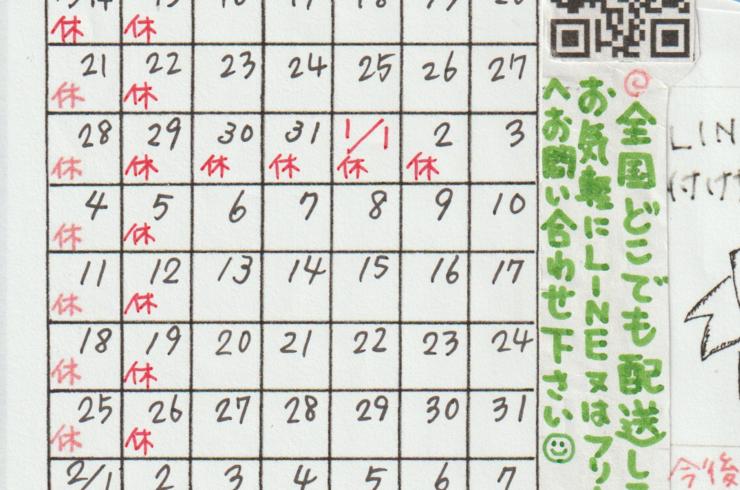 14 15 16 17 18 19 20
休 休
21 22 23 24 25 26 27
休 休
28 29 30 31 1/1 2 3
休 休 休 休 休 休
4 5 6 7 8 9 10
休 休
11 12 13 14 15 16 17
休 休
18 19 20 21 22 23 24
休 休
25 26 27 28 29 30 31
休 休
2/1 2 3 4 5 6 7
全国どこでも配送して
お気軽にLINE又はフリ
へお問い合わせ下さい
LIN
付け
今後